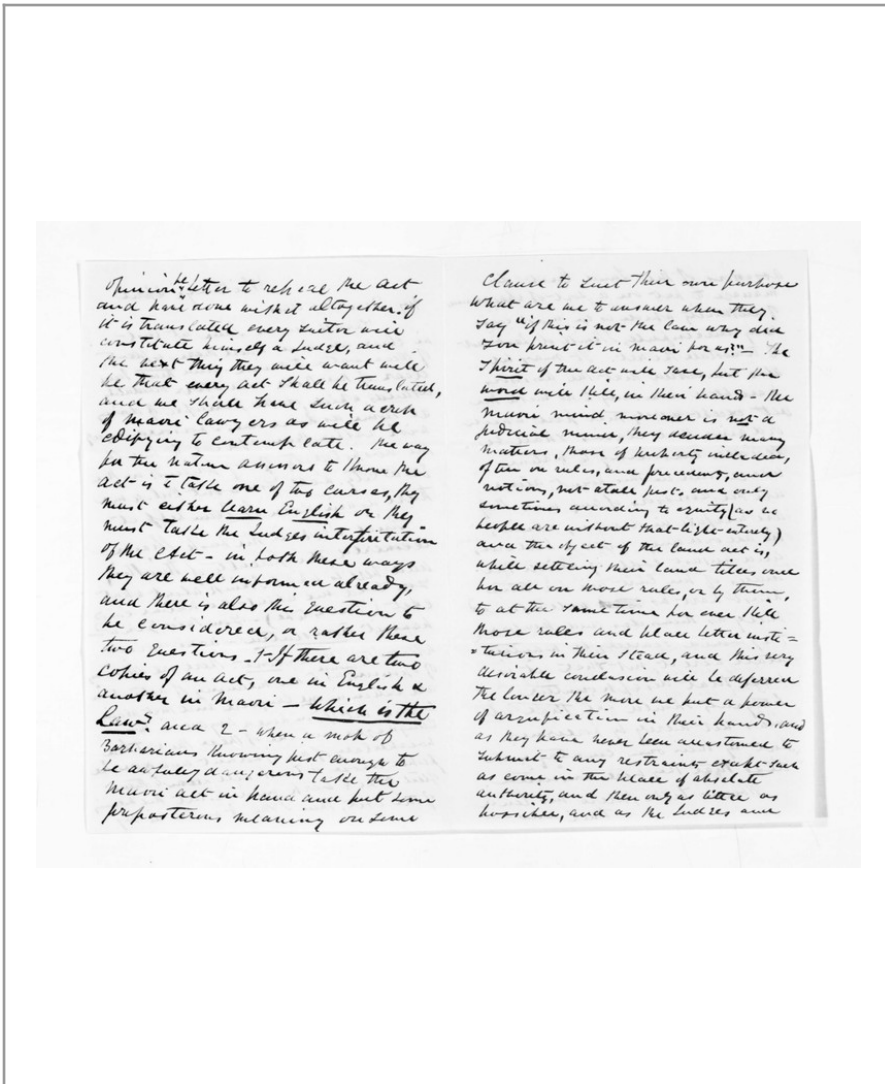 opinion be better to repeal the Act
and have done with it altogether. if
it is translated every Suitor will
constitute himself a Judge, and
the next thing they will want will
be that every act shall be translated,
and we shall have such a crop
of maori lawyers as will be
edifying to contemplate. The way
for the native assessors to know the
act is to take one of two courses, they
must either learn English or they
must take the Judges interpretation
of the Act - in both these ways
they are well informed already,
and there is also this question to
be considered, or rather these
two questions - 1 - If there are two
copies of an act, one in English &
another in Maori - which is the
Law? and 2 - when a mob of
Barbarians knowing just enough to
be awfully dangerous take the
Maori act in hand and put some
preposterous meaning on some
clause to suit their own purpose
what are we to answer when they
say "if this is not the law why did
you print it in maori for us?" - The
Spirit of the act will save, but the
word will kill, in their hands - the
maori mind moreover is not a
judicial mind, they decide many
matters, those of property included,
often on rules, and precedents, and
notions, not at all just, and only
sometimes according to equity (as no
people are without that light entirely)
and the object of the land act is,
while settling their land titles once
for all on those rules, or by them,
to at the same time for ever kill
those rules and place better insti=
=tutions in their stead, and this very
desirable conclusion will be deferred
the longer the more we put a power
of in their hands, and
as they have never been accustomed to
submit to any restraint except such
as come in the place of absolute
authority, and then only as little as
possible, and as the Judges and